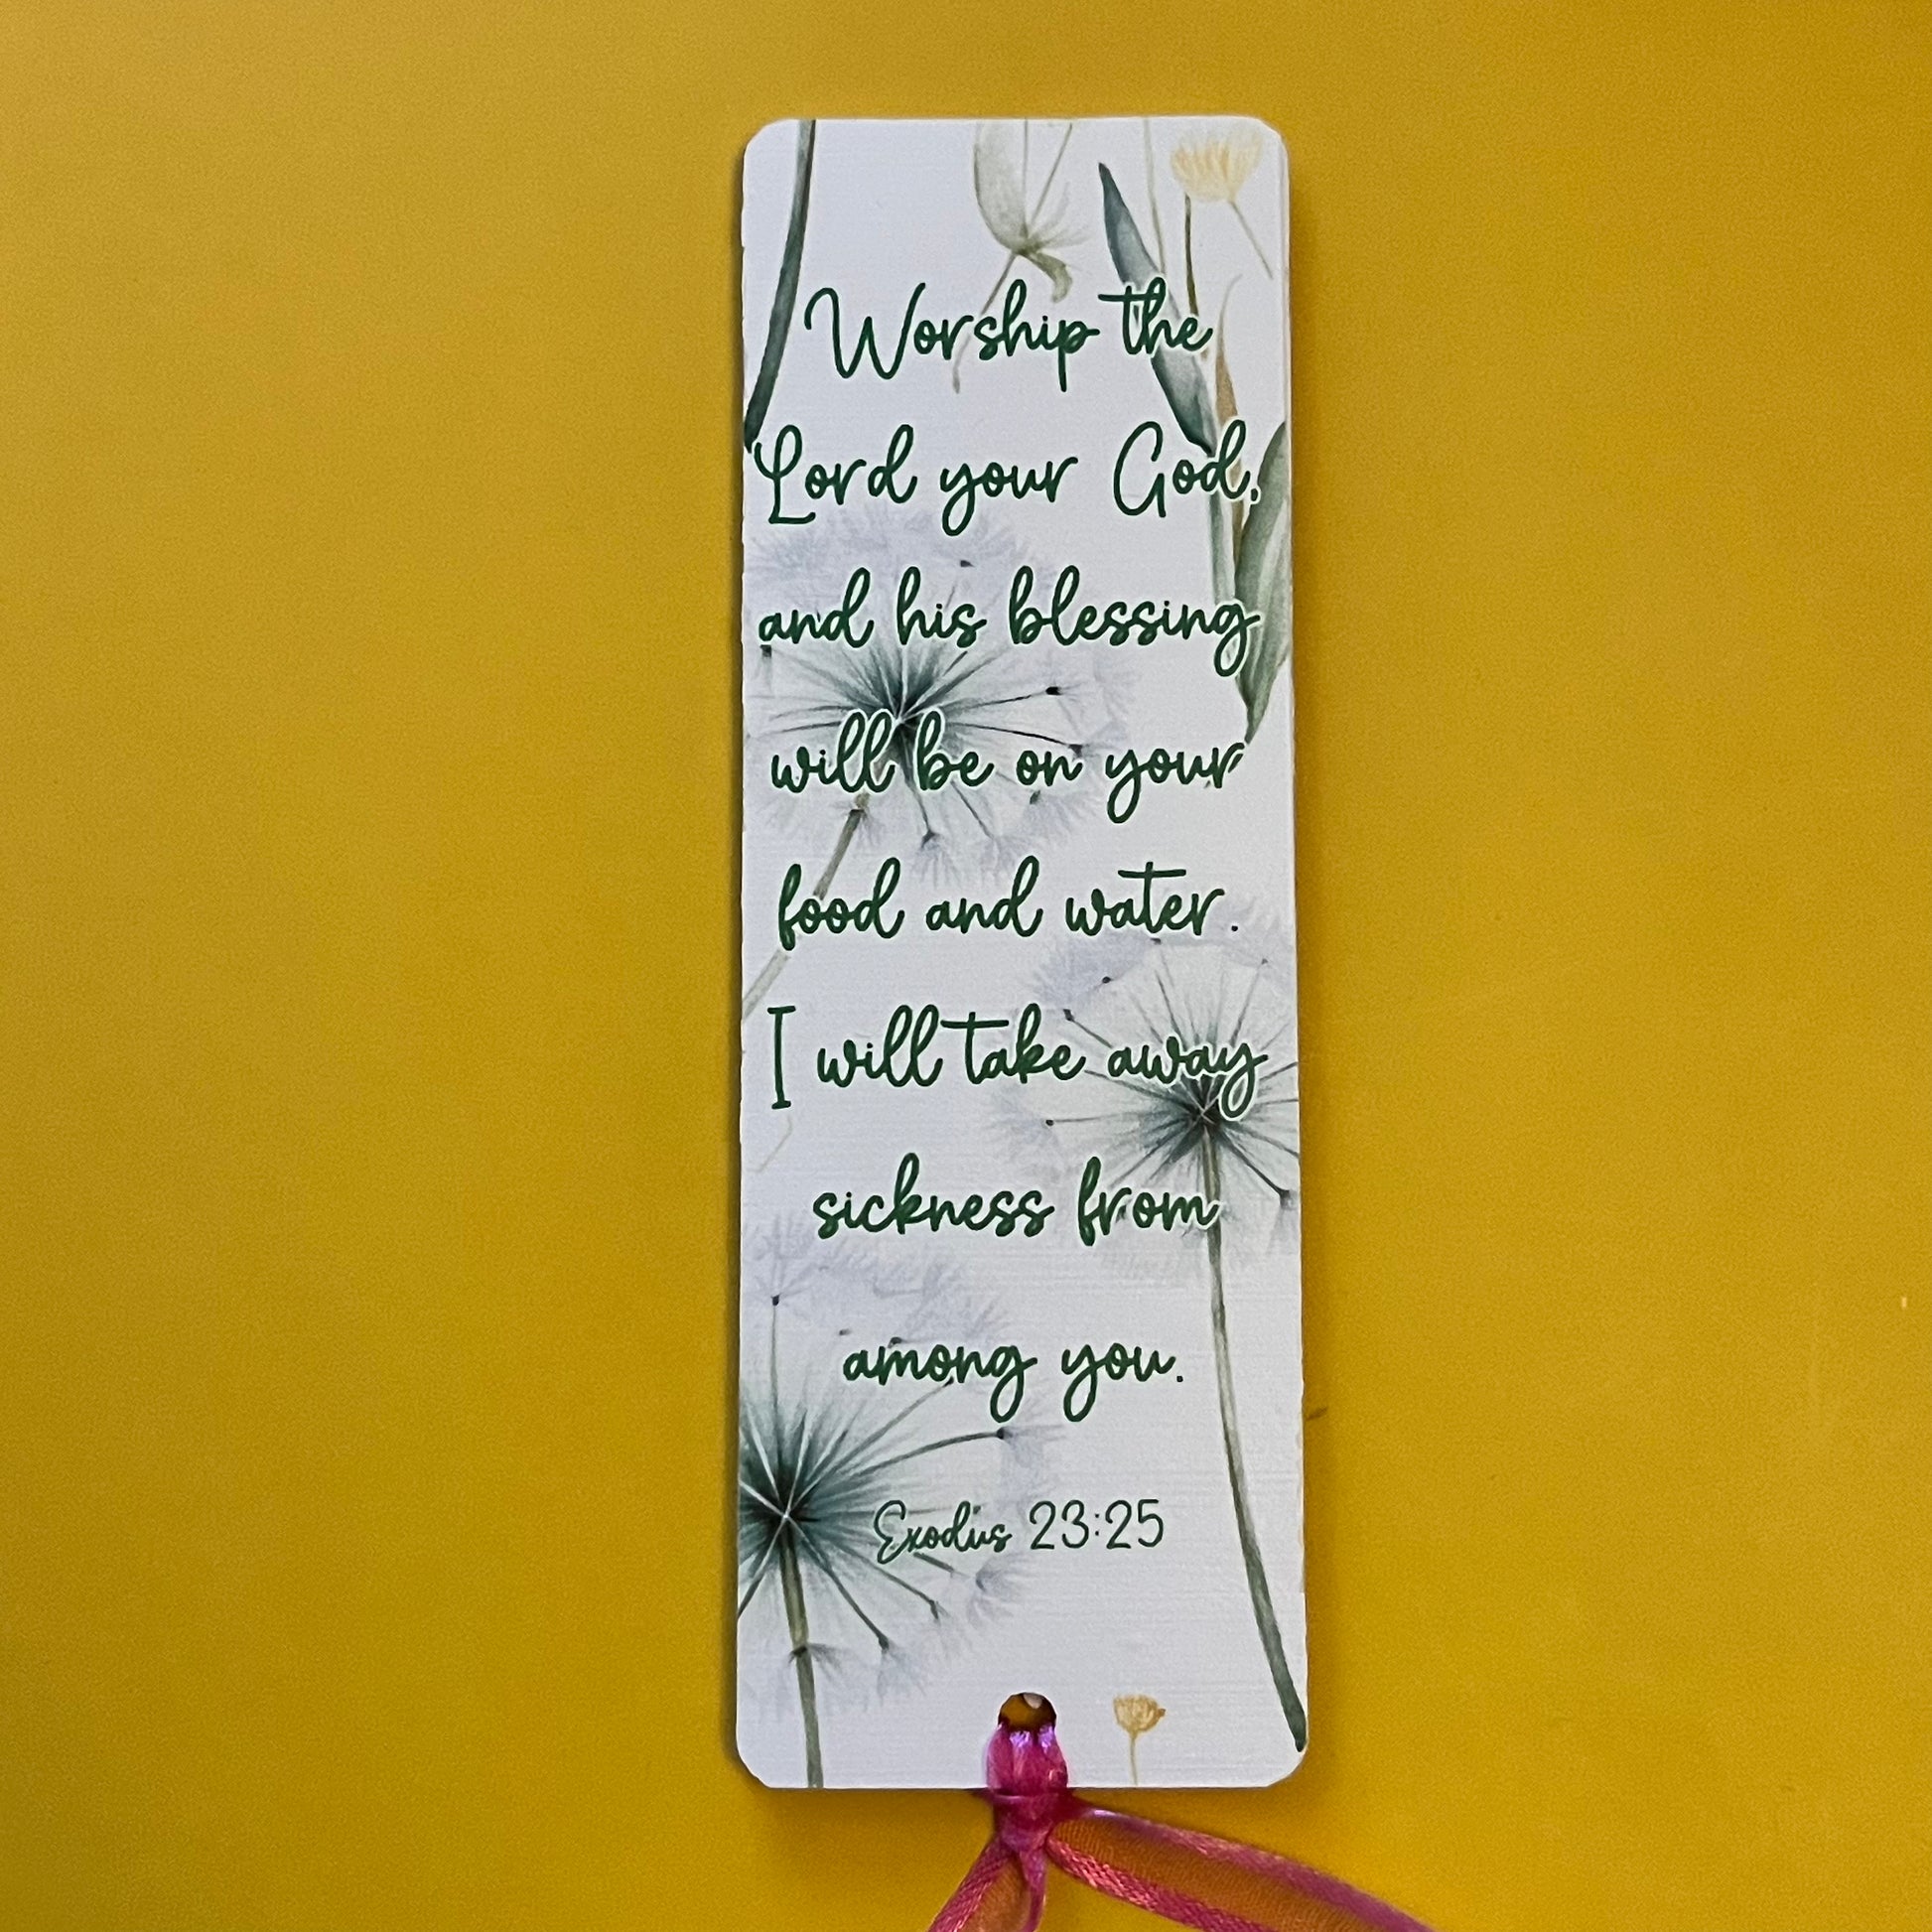 Worship the
Lord your God,
and his blessing
will be on your
food and water.
I will take away
sickness from
among you.
Exodus 23:25